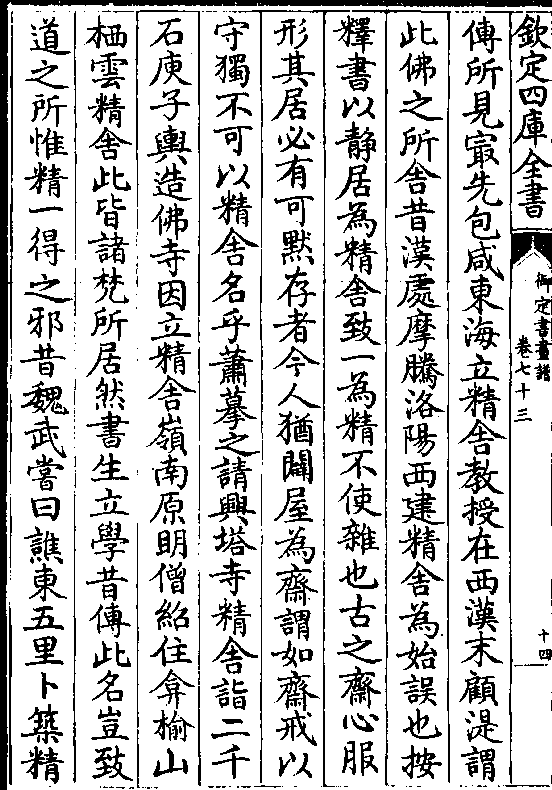 欽定四庫全書
御定書畫譜
卷七十三
十四
傳所見㝡先包咸東海立精舎教授在西漢末顧湜謂
此佛之所舎昔漢處摩騰洛陽西建精舎為始誤也按
釋書以静居為精舎致一為精不使雜也古之齋心服
形其居必有可黙存者今人猶闢屋為齋謂如齋戒以
守獨不可以精舎名乎蕭摹之請興塔寺精舎詣二千
石庾子輿造佛寺因立精舎嶺南原明僧紹住弇榆山
栖雲精舎此皆諸梵所居然書生立學昔傳此名豈致
道之所惟精一得之邪昔魏武嘗曰譙東五里卜築精